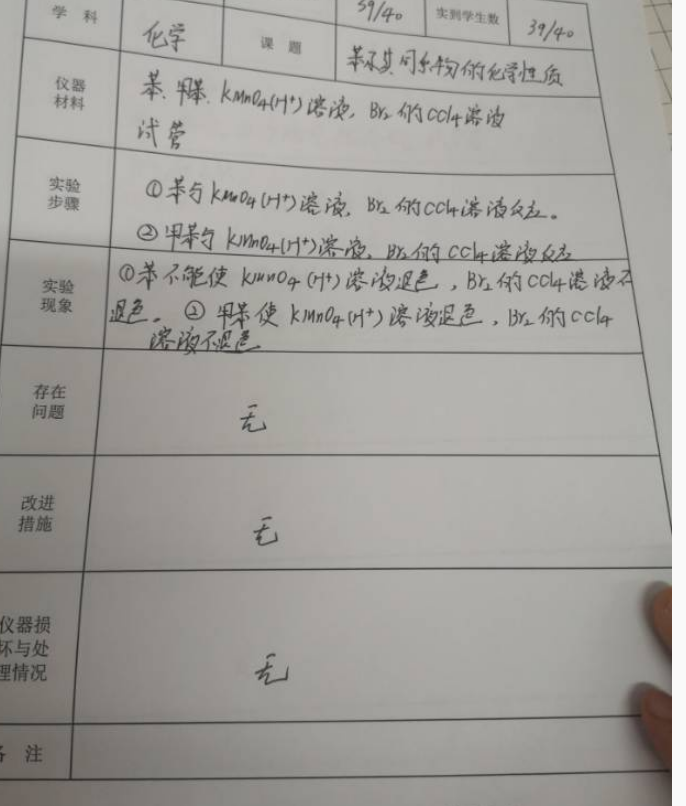 学科 化学 课题 39/40 实到学生数 39/40
苯及其同系物的化学性质
仪器材料 苯、甲苯、KMnO4(H+)溶液、Br2的CCl4溶液
试管
实验步骤 ①苯与KMnO4(H+)溶液、Br2的CCl4溶液反应。
②甲苯与KMnO4(H+)溶液、Br2的CCl4溶液反应
实验现象 ①苯不能使KMnO4(H+)溶液退色，Br2的CCl4溶液不
退色。②甲苯使KMnO4(H+)溶液退色，Br2的CCl4
溶液不退色
存在问题 无
改进措施 无
仪器损
坏与处 无
理情况
备注